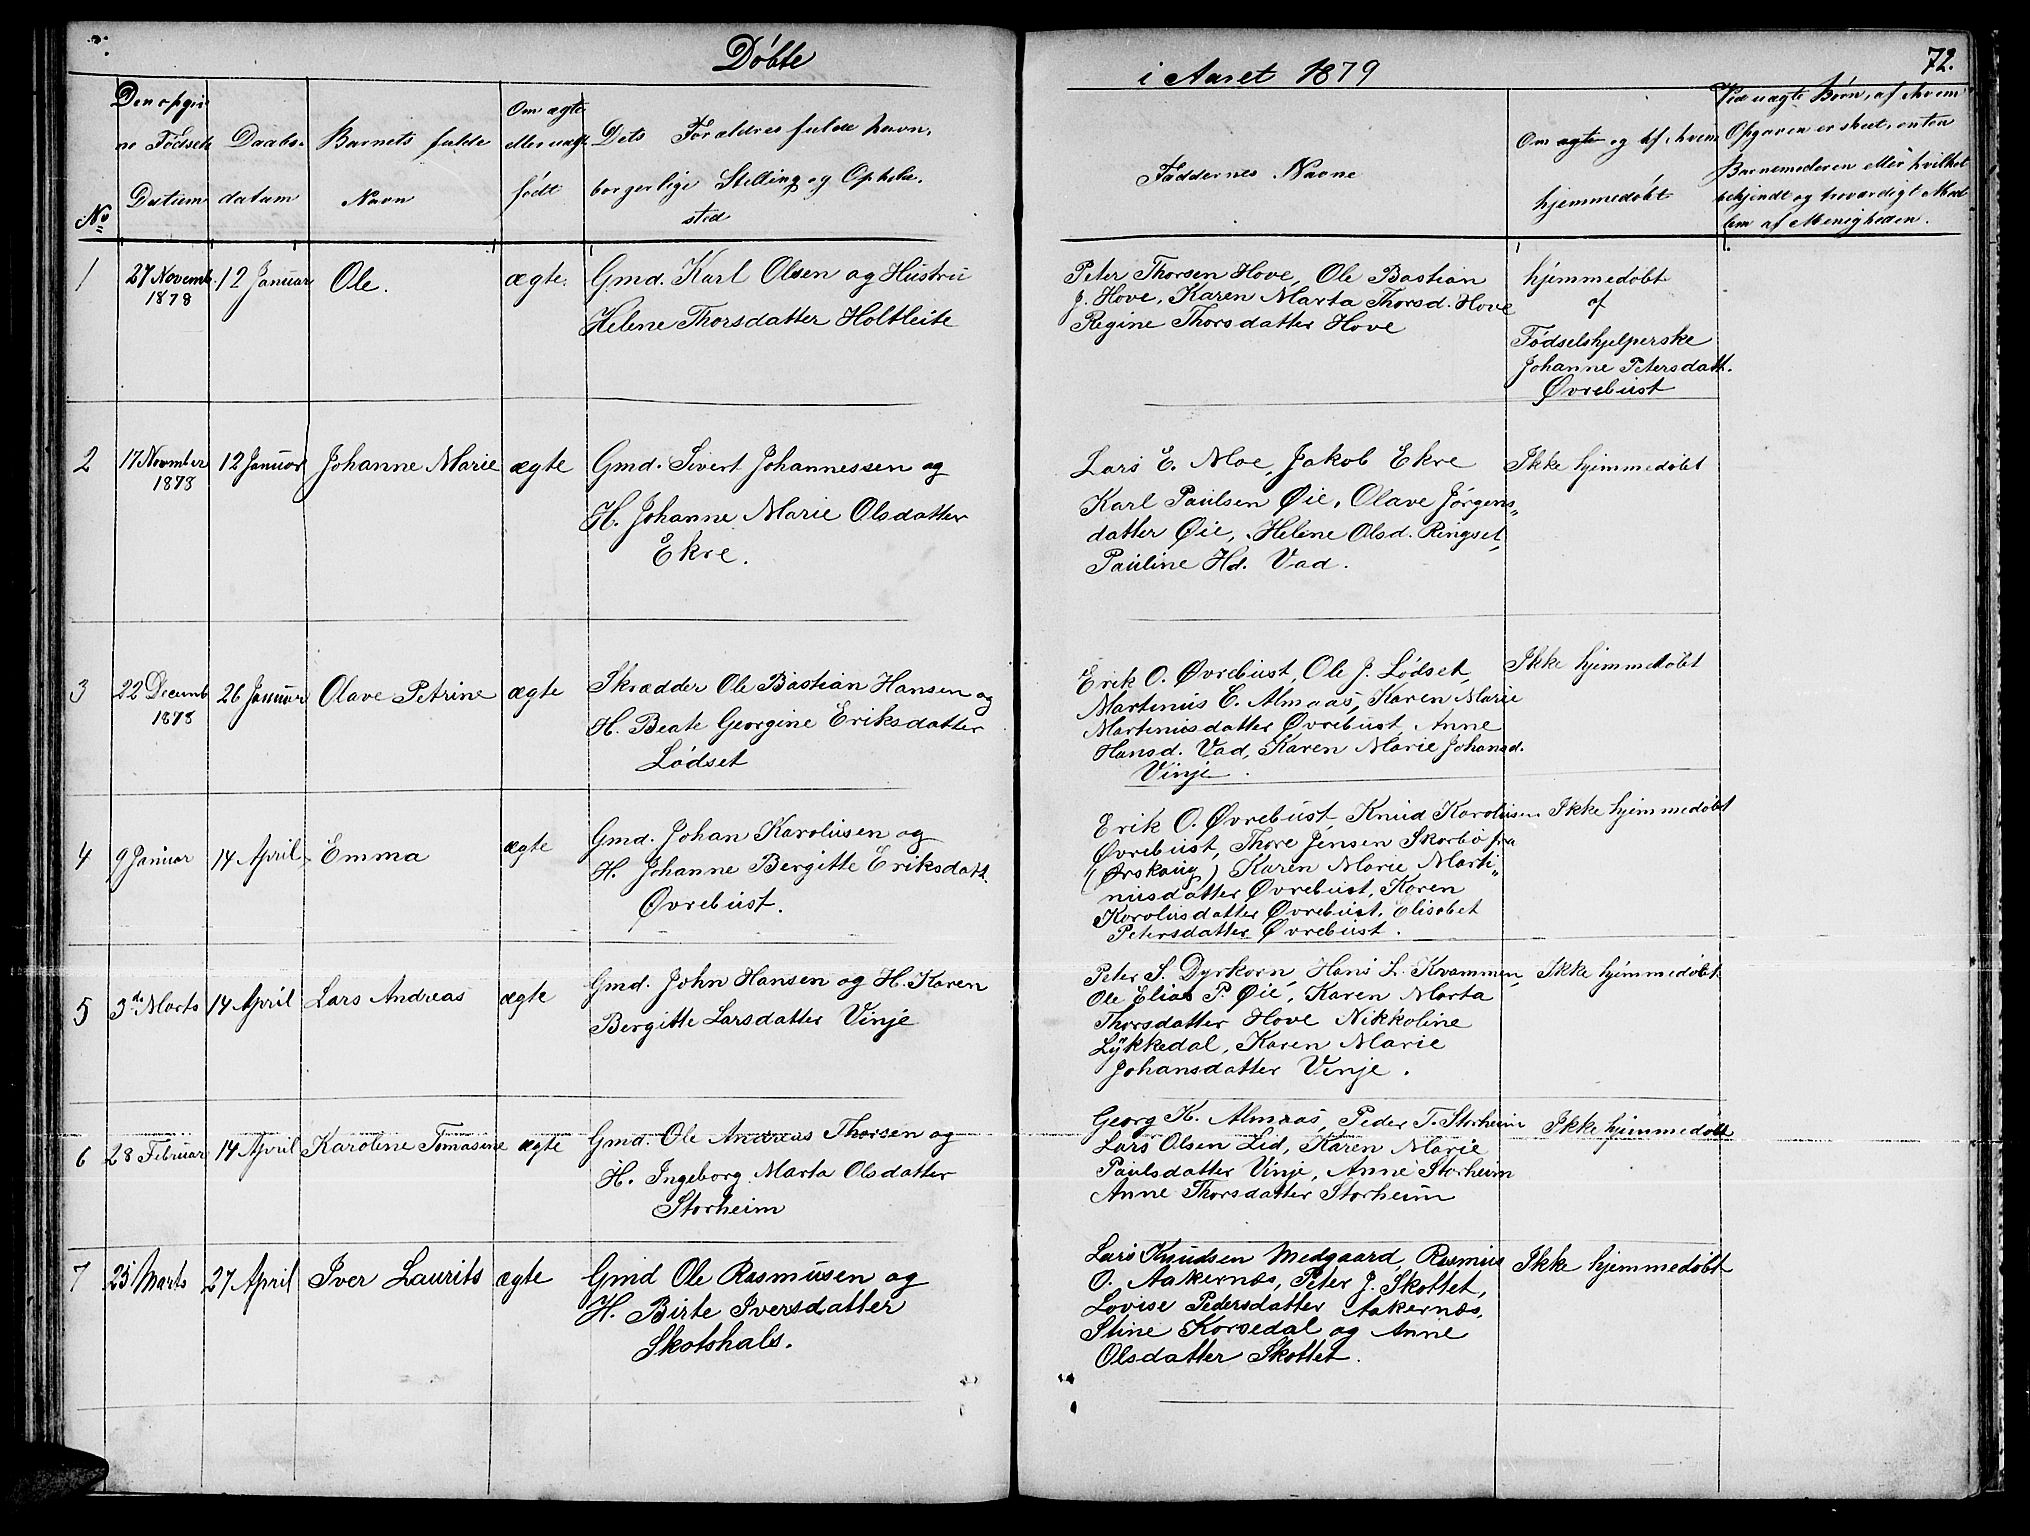 Døbte
i Aaret 1879
72.
No
Den opgiv
ne Fødsels
Datum
Daabs-
datum
Barnets fulde
Navn
Om ægte
eller uægte
født
Dets Forældres fulde Navn,
borgerlige Stilling og Opholds-
sted
Faddernes Navne
Om ægte og af hvem
hjemmedøbt
Ved uægte Børn, af hvem
Opgaven er skeet, enten
Barnemoderen eller hvilket
bekjendt og troværdigt Med
lem af Menigheden.
1
27 Novemb
1878
12 Januar
Ole.
ægte.
Gmd. Karl Olsen og Hustru
Helene Thorsdatter Holtleite
Peter Thorsen Hove, Ole Bastian
J. Hove, Karen Marta Thorsd. Hove
Regine Thorsdatter Hove
hjemmedøbt
af
Fødselshjelperske
Johanne Petersdatt.
Øvrebust
2
17 November
1878
12 Januar
Johanne Marie
ægte
Gmd. Sivert Johannessen og
H. Johanne Marie Olsdatter
Ekre.
Lars E. Moe, Jakob Ekre
Karl Paulsen Øie, Olave Jørgens„
datter Øie, Helene Olsd. Ringset,
Pauline Hd. Vad.
Ikke hjemmedøbt
3
22 Decemb
1878
26 Januar
Olave Petrine
ægte
Skrædder Ole Bastian Hansen og
H. Beate Georgine Eriksdatter
Lødset
Erik O. Øvrebust, Ole J. Lødset,
Martinus E. Almaas, Karen Marie
Martinusdatter Øvrebust, Anne
Hansd. Vad, Karen Marie Johansd.
Vinje.
Ikke hjemmedøbt
4
9 Januar
14 April
Emma
ægte
Gmd. Johan Karolusen og
H. Johanne Bergitte Eriksdatt.
Øvrebust.
Erik O. Øvrebust, Knud Karolusen
Øvrebust, Thore Jensen Skorbø fra
(Ørskoug) Karen Marie Marti„
nusdatter Øvrebust, Karen
Karolusdatter Øvrebust. Elisabet
Petersdatter Øvrebust.
Ikke hjemmedøbt
5
3de Marts
14 April
Lars Andreas
ægte
Gmd. John Hansen og H. Karen
Bergitte Larsdatter Vinje
Peter S. Dyrkorn, Hans L. Kvammen,
Ole Elias P. Øie, Karen Marta
Thorsdatter Hove Nikkoline
Lykkedal, Karen Marie
Johansdatter Vinje.
Ikke hjemmedøbt
6
28 Februar
14 April
Karoline Tomasine
ægte
Gmd. Ole Andreas Thorsen og
H. Ingeborg Marta Olsdatter
Storheim
Georg K. Almaas, Peder T. Storheim
Lars Olsen Lid, Karen Marie
Paulsdatter Vinje, Anne Storheim
Anne Thorsdatter Storheim
Ikke hjemmedøbt
7
25 Marts
27 April
Iver Laurits
ægte
Gmd Ole Rasmusen og
H. Birte Iversdatter
Skotshals.
Lars Knudsen Medgaard, Rasmus
O. Aakernæs, Peter J. Skottet,
Lovise Pedersdatter Aakernæs.
Stine Korsedal og Anne
Olsdatter Skottet.
Ikke hjemmedøbt